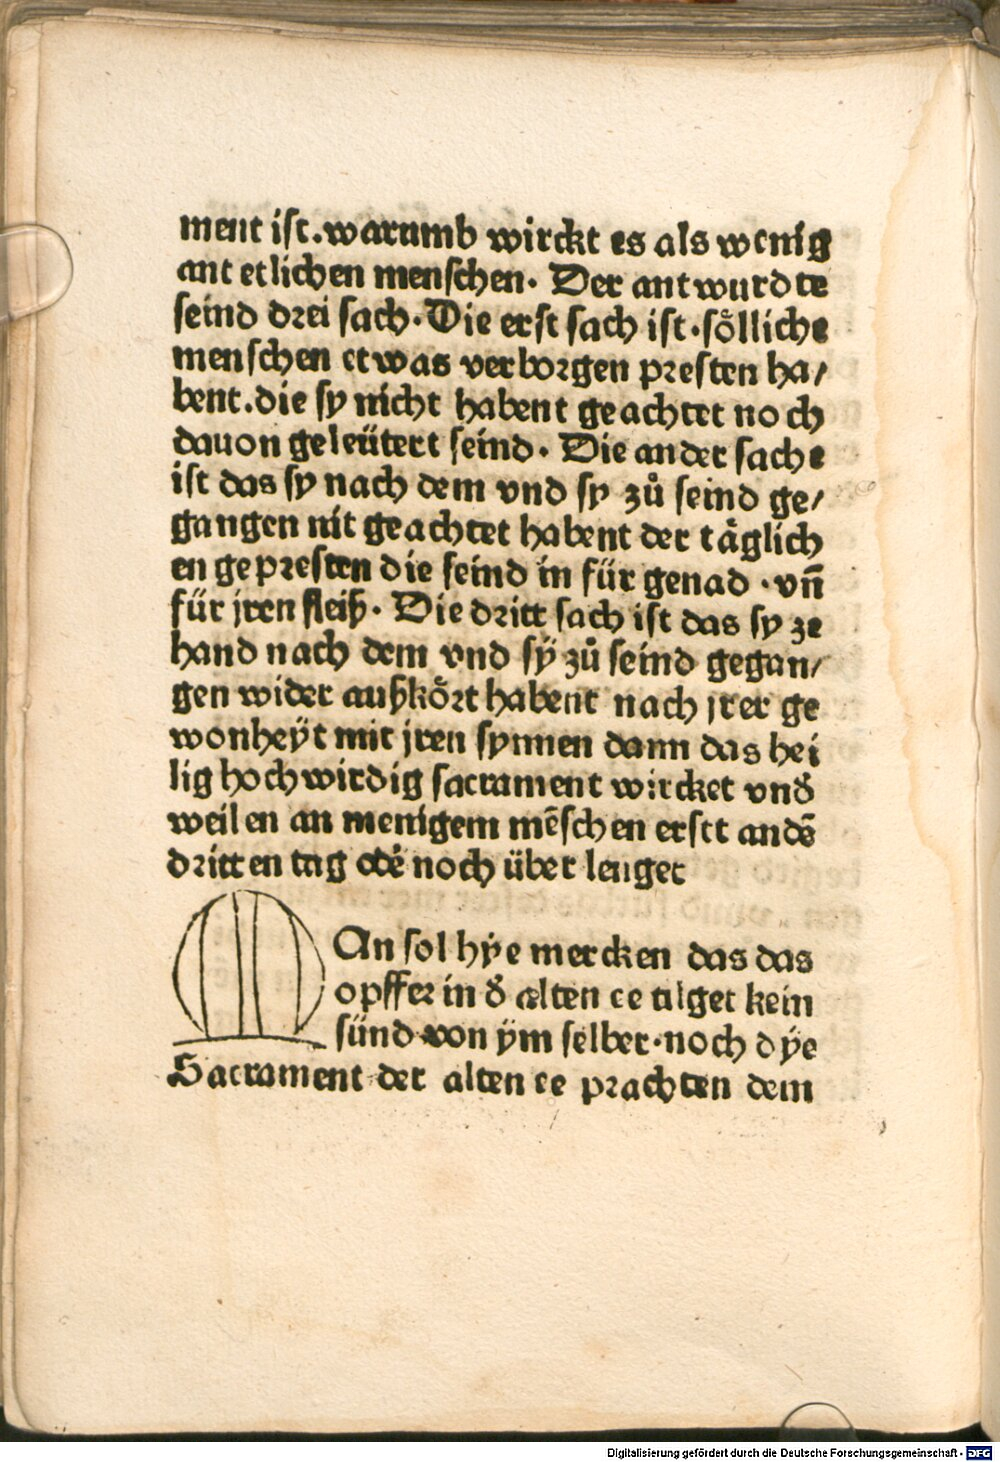 ment ist. warumb wirckt es als wenig
ant etlichen menschen. Der antwurdte
seind drei sach. Die erst sach ist. sölliche
menschen etwas verborgen presten ha/
bent. die sy nicht habent geachtet noch
dauon geleütert seind. Die ander sache
ist das sy nach dem vnd sy zů seind ge/
gangen nit geachtet habent der täglich
en gepresten die seind in für genad. vn̄
für jren fleiß. Die dritt sach ist das sy ze
hand nach dem vnd sÿ zů seind gegan/
gen wider außkört habent nach jrer ge
wonheÿt mit jren synnen dann das hei
lig hochwirdig sacrament wircket vnd̕
weilen an menigem mēschen erstt andē
dritten tag oder̄ noch über lenger
MAn sol hÿe mercken das das
opffer in d̕ alten ee tilget kein
sünd von ÿm selber. noch dÿe
Sacrament der alten ee prachten dem
Digitalisierung gefördert durch die Deutsche Forschungsgemeinschaft - DFG